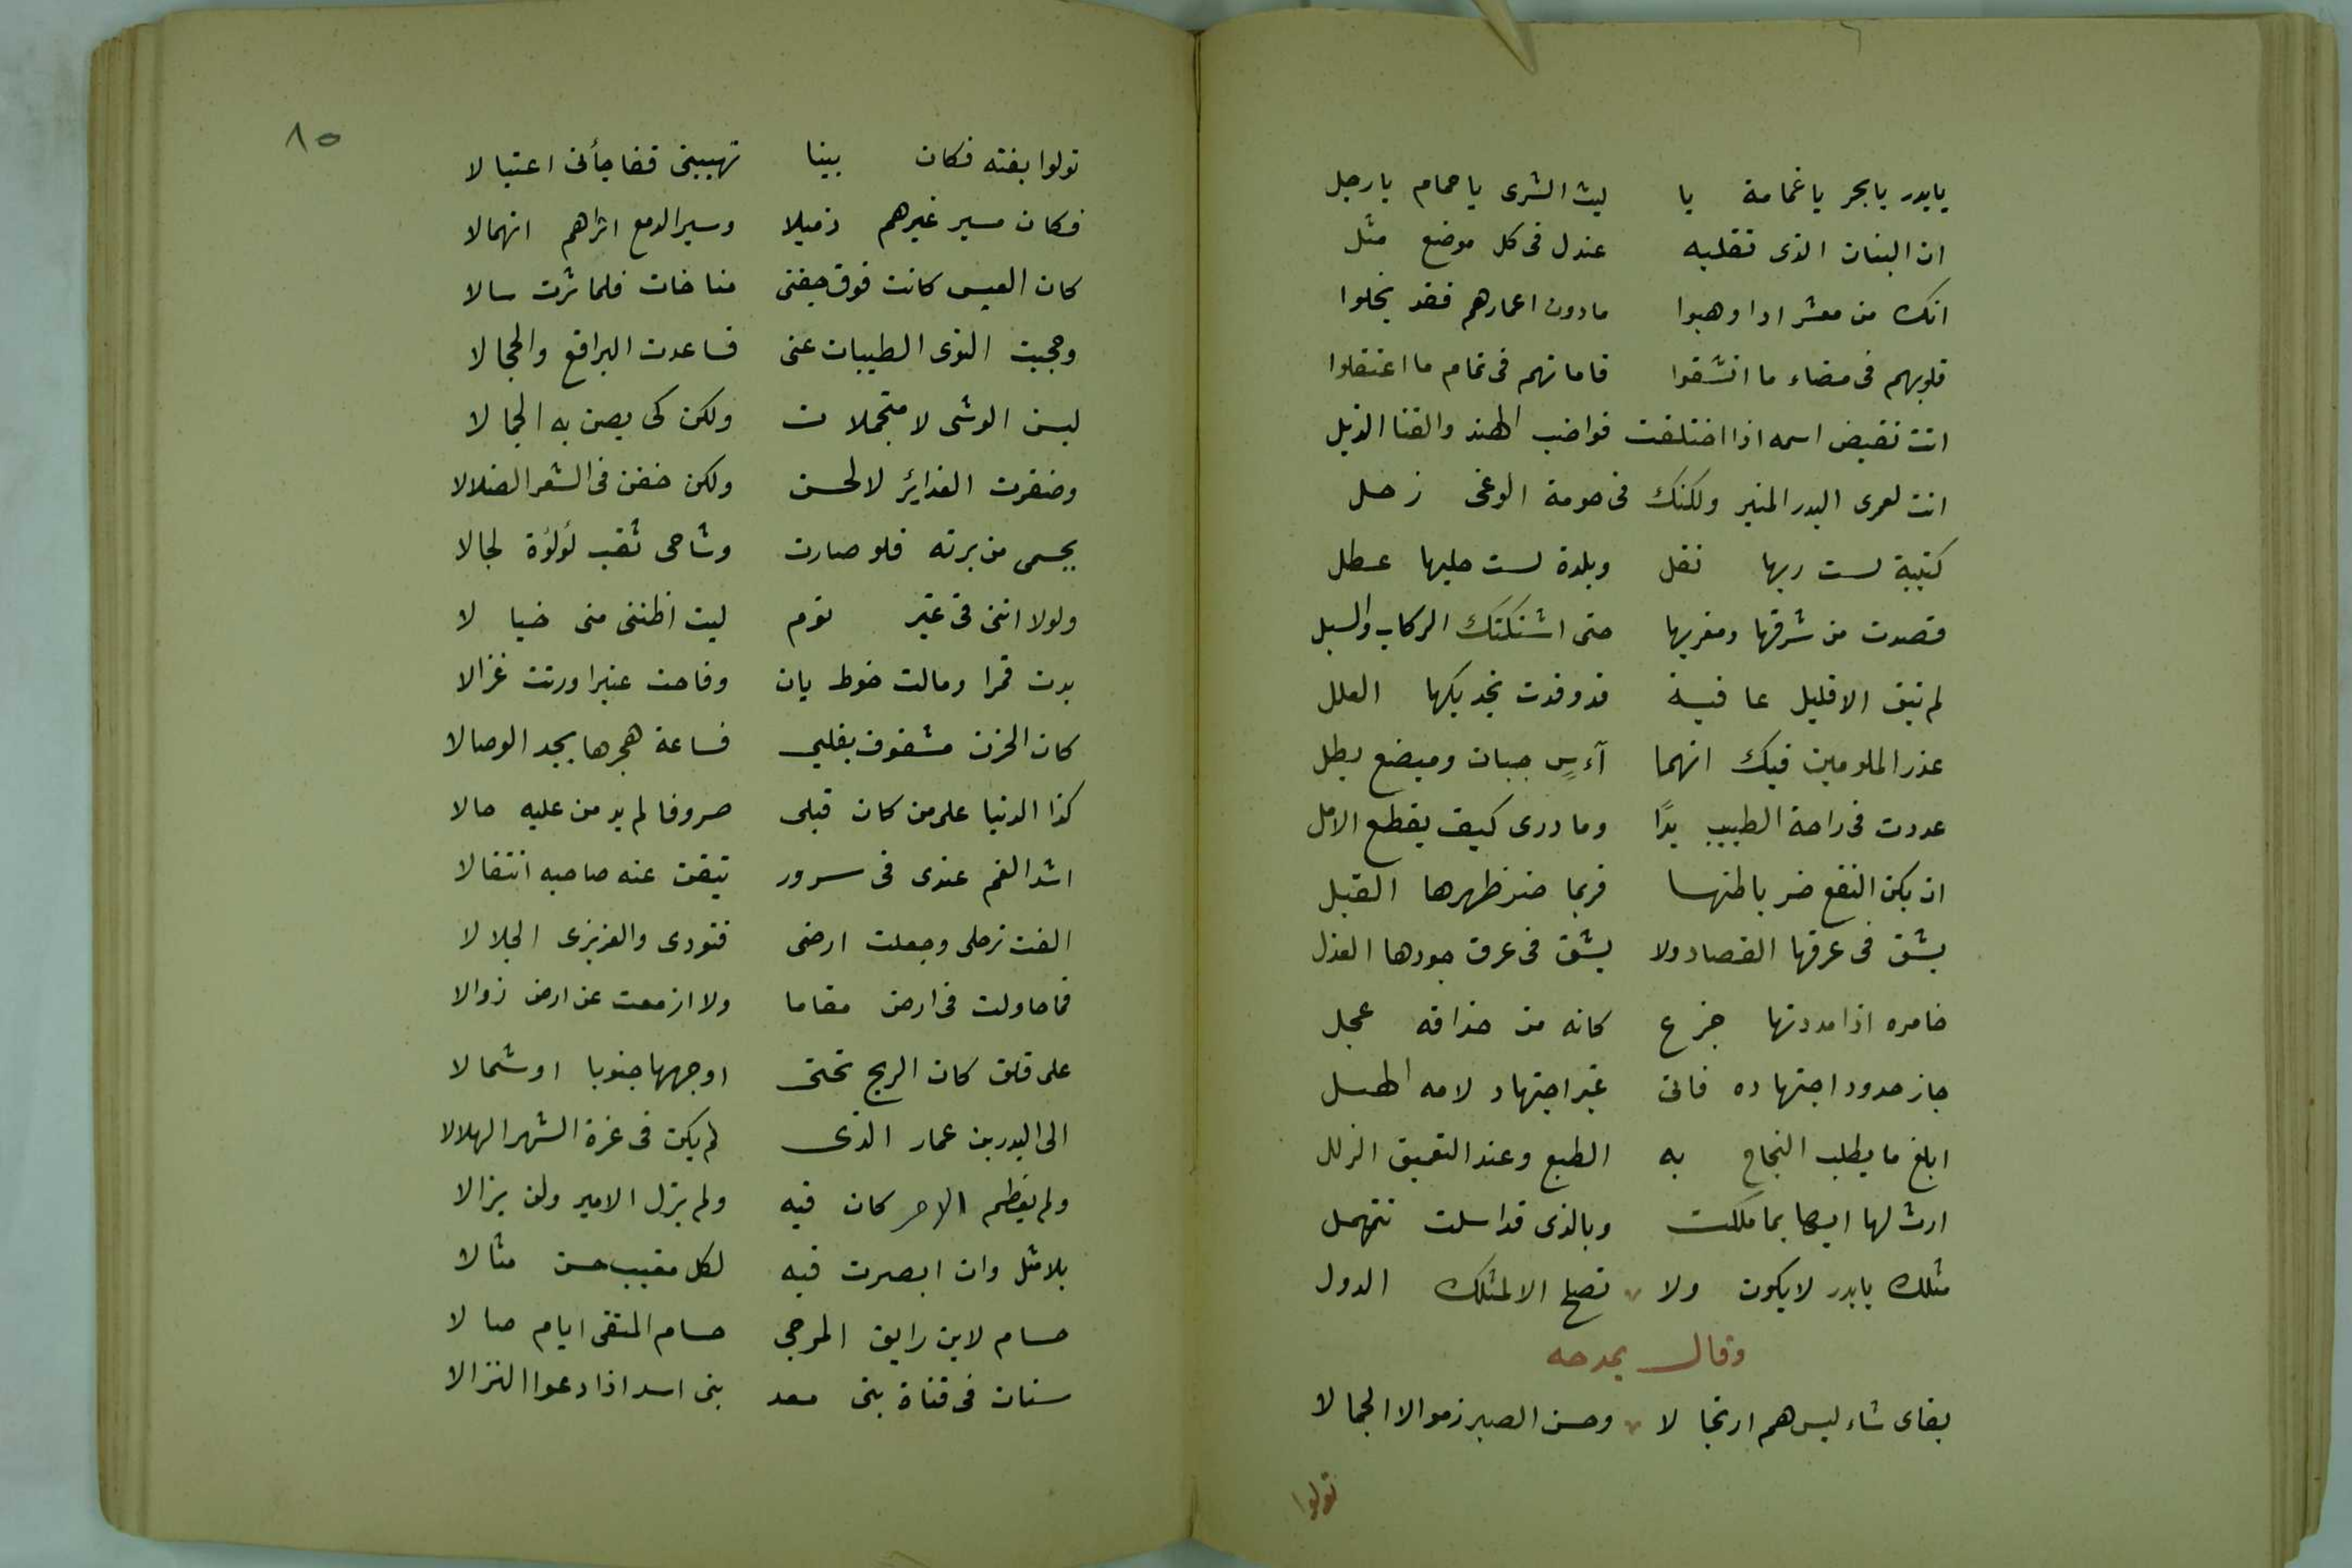 يابدر يابحر ياغمامة يا ليث الشرى ياحمام يارجل
ان البنان الذى تقلبه عندك فى كل موضع مثل
انك من معشر اذا وهبوا مادون اعمارهم فقد بخلوا
قلوبهم فى مضاء ما انتشقوا قاماتهم فى تمام ما اعتقلوا
انت نقيض اسمه اذا اختلفت قواضب الهند والقنا الذبل
انت لعمرى البدر المنير ولكنك فى حومة الوغى زحل
كتيبة لست ربها نفل وبلدة لست حليها عطل
قصدت من شرقها ومغربها حتى اشتكتك الركاب والسبل
لم تبق الا قليل عافية قد وفدت تجديكها العلل
عذر الملومين فيك انهما آءسٍ جبان ومبضع بطل
عددت فى راحة الطبيب يدًا وما درى كيف يقطع الامل
ان يكن النفع ضر باطنها فربما ضر ظهرها القبل
يشق فى عرقها الفصاد ولا يشق فى عرق جودها العذل
خامره اذا مددتها جزع كانه من حذاقه عجل
جاز حدود اجتهاده فاتى غير اجتهاد لامه الهبل
ابلغ ما يطلب النجاح به الطبع وعند التعميق الزلل
ارث لها ايها بما ملكت وبالذى قد اسلت تنهمل
مثلك يابدر لايكون ولا تصلح الا لمثلك الدول
وقال يمدحه
بقاى شاء ليس هم ارتجالا وحسن الصبر زموا لا الجمالا
تولوا
٨٥
تولوا بغته فكان بينا تهيبنى ففاجأنى اعتيالا
فكان مسير غيرهم ذميلا وسير الدمع اثراهم انهمالا
كان العيس كانت فوق جفنى مناخات فلما ثرت سالا
وحجبت النوى الطيبات عنى فساعدت البراقع والحجالا
لبسن الوشى لا متجملات ولكن كى يصن به الجمالا
وضفرت الغدائر لا لحسن ولكن خفن فى الشعر الضلالا
بجسمى من برته فلو صارت وشاحى ثقب لؤلؤة لجالا
ولولا اننى فى غير نوم لبت اظننى منى خيالا
بدت قمرا ومالت خوط بان وفاحت عنبرا ورنت غزالا
كان الحزن مشغوف بقلبى فساعة هجرها يجد الوصالا
كذا الدنيا على من كان قبلى صروفا لم يدمن عليه حالا
اشد الغم عندى فى سرور تيقن عنه صاحبه انتقالا
الفت ترحلى وجعلت ارضى قتودى والغريزى الجلالا
فما حاولت فى ارض مقاما ولا ازمعت عن ارض زوالا
على قلق كان الريح تحتى اوجهها جنوبا او شمالا
الى البدر بن عمار الذى لم يكن فى غرة الشهر الهلالا
ولم يعظم الامر كان فيه ولم يزل الامير ولن يزالا
بلا مثل وان ابصرت فيه لكل مغيب حسن مثالا
حسام لابن رايق المرجى حسام المتقى ايام صالا
سنان فى قناة بنى معد بنى اسد اذا دعوا النزالا